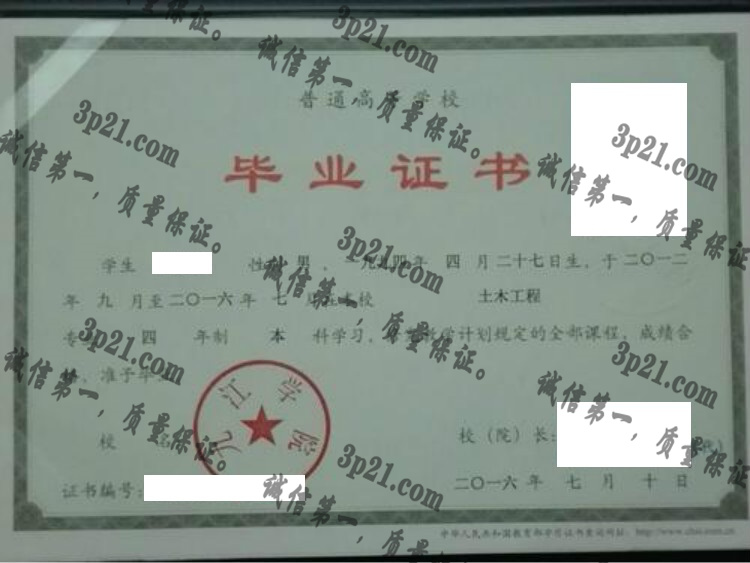 普通高 学校
毕业证书
学生 性 男，一九九四年 四 月二十七日生，于二〇一二
年 九 月至二〇一六年 七 月在本校 土木工程
专 四 年制 本 科学习， 教学计划规定的全部课程，成绩合
，准予毕
九江学院
校 名 校（院）长：
证书编号： 二〇一六年 七 月 十 日
中华人民共和国教育部学历证书查询网址：http://www.chsi.com.cn
3p21.com
诚信第一，质量保证。
3p21.com
诚信第一，质量保证。
3p21.com
诚信第一，质量保证。
3p21.com
诚信第一，质量保证。
3p21.com
诚信第一，质量保证。
3p21.com
诚信第一，质量保证。
3p21.com
诚信第一，质量保证。
3p21.com
诚信第一，